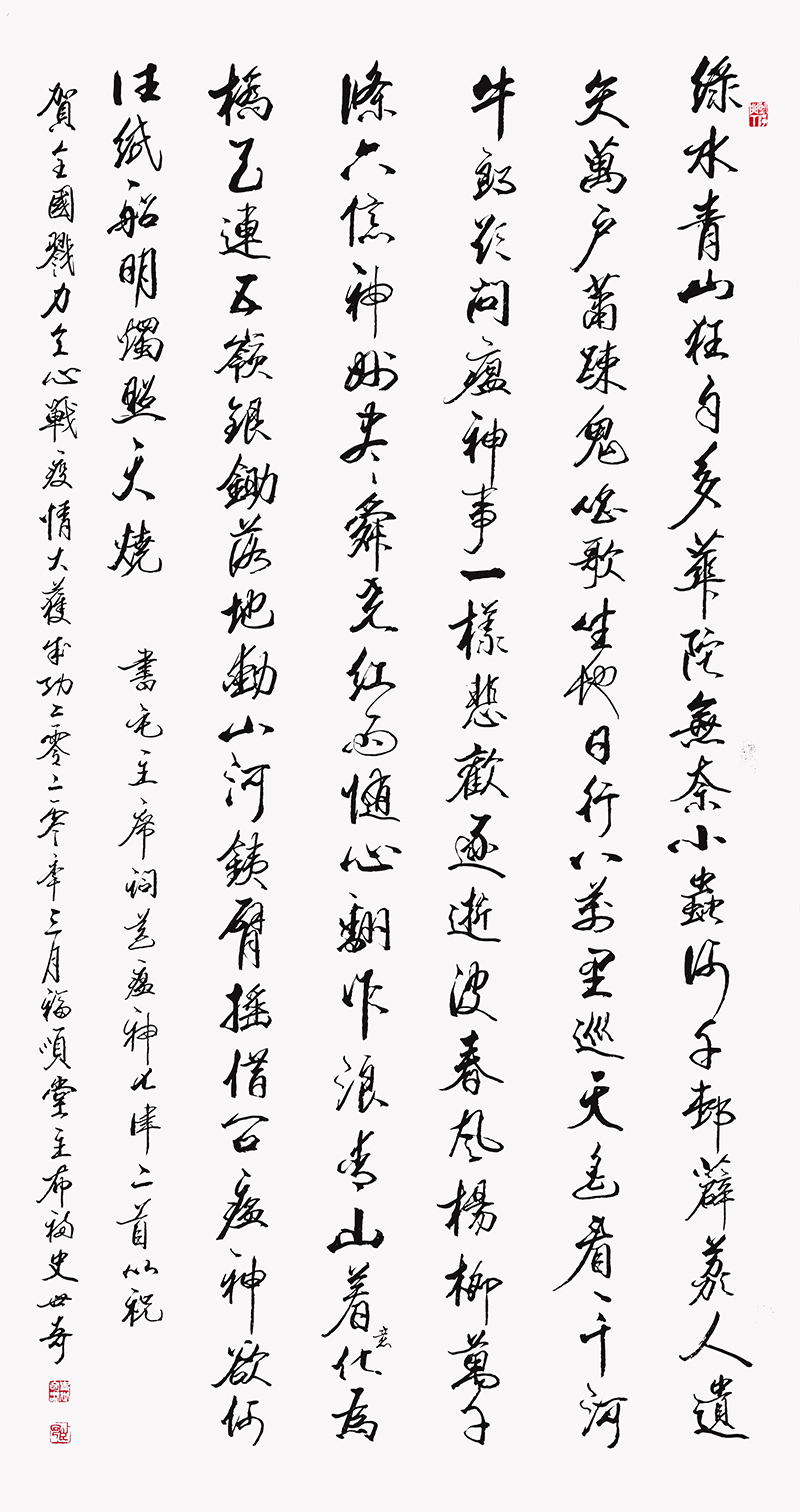 綠水青山狂自多華陀無奈小蟲何千邨薜荔人遺
矢萬户蕭疎鬼唱歌坐地日行八萬里巡天遥看一千河
牛郎欲問瘟神事一樣悲歡逐逝波春風楊柳萬千
條六億神州尽舜堯紅雨隨心翻作浪青山着意化為
橋天連五嶺銀鋤落地動山河鐵臂摇借問瘟神欲何
往紙船明燭照天燒 書毛主席詞送瘟神七律二首以祝
賀全國戮力全心戰疫情大獲成功二零二零年三月福順堂主布福史世奇